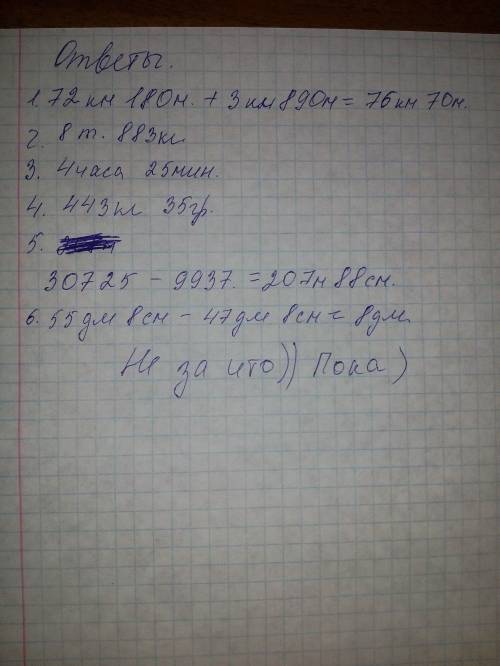 Ответы.
1. 72 км 180м. + 3 км 890м = 76км 70м.
2. 8 т. 883кг
3. 4часа 25мин.
4. 443кг 35гр.
5.
30725 - 9937. = 207м 88см.
6. 55дм 8см - 47дм 8см = 8дм.
Не за что)) Пока)